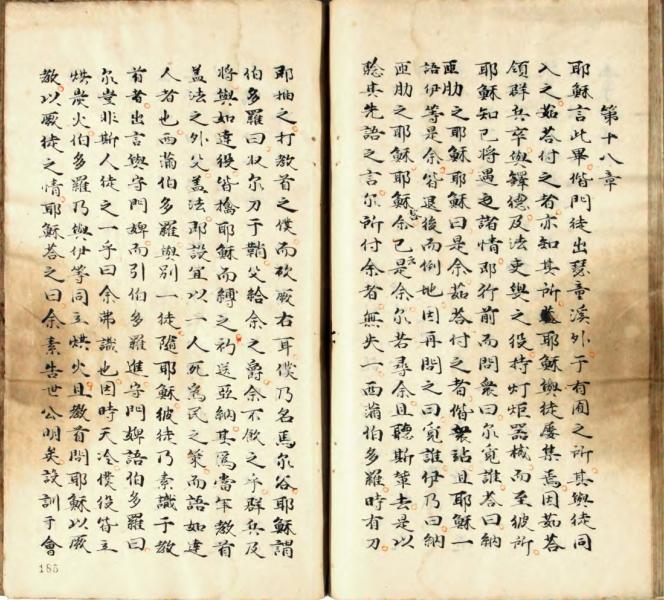 第十八章
耶穌言此畢偕門徒出瑟童溪外于有囿之所其與徒同
入之茹荅付之者亦知其所耶穌與徒屢集焉因茹荅
領群兵卒與鐸德及法吏與之役持灯炬器械而至彼所
耶穌知已將遇之諸情即行前而問眾曰尔覓誰荅曰納
匝肋之耶穌耶穌曰是余茹荅付之者偕眾站且耶穌一
語伊等是余皆退後而倒地因再問之曰覓誰伊乃曰納
匝肋之耶穌耶穌荅余已言是余尔若尋余且聽斯輩去是以
騐其先語之言尔所付余者無失一西滿伯多羅時有刀
即抽之打教首之僕而砍厥右耳僕乃名馬尔谷耶穌謂
伯多羅曰收尔刀于鞘父給余之爵余不飲之乎群兵及
將與如達役皆擒耶穌而縛之初送亞納其為當年教首
盖法之外父盖法即設宜以一人死為民之策而語如達
人者也西滿伯多羅與別一徒隨耶穌彼徒乃素識于教
首者出言與守門婢而引伯多羅進守門婢語伯多羅曰
尔豈非斯人徒之一乎曰余弗識也因時天冷僕役皆立
烘炭火伯多羅乃與伊等同立烘火且教首問耶穌以厥
教以厥徒之情耶穌荅之曰余素告世公明矣設訓于會
185